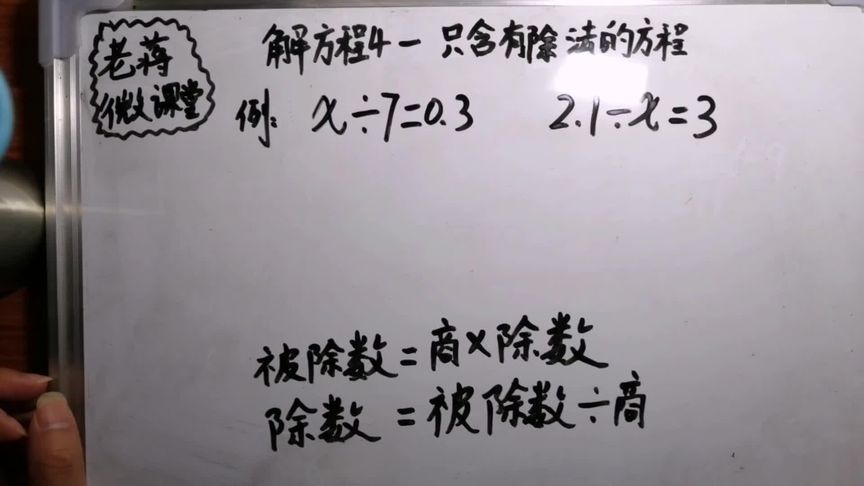 老蒋
微课堂
解方程4一只含有除法的方程
例: x÷7=0.3 2.1÷x=3
被除数=商×除数
除数=被除数÷商